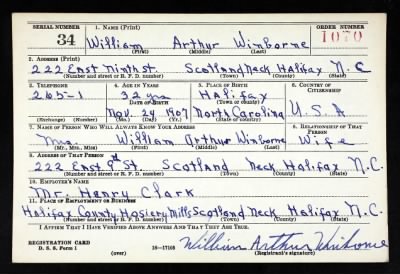 SERIAL NUMBER 1. NAME (Print) ORDER NUMBER
34 William Arthur Winborne 1070
(First) (Middle) (Last)
2. ADDRESS (Print)
222 East Ninth St. Scotland Neck Halifax N.C
(Number and street or R. F. D. number) (Town) (County) (State)
3. TELEPHONE 4. AGE IN YEARS 5. PLACE OF BIRTH 6. COUNTRY OF CITIZENSHIP
265-1 32 Halifax
DATE OF BIRTH (Town or county)
Nov. 24 1907 North Carolina U.S.A
(Exchange) (Number) (Mo.) (Day) (Yr.) (State or country)
7. NAME OF PERSON WHO WILL ALWAYS KNOW YOUR ADDRESS 8. RELATIONSHIP OF THAT PERSON
Mrs. William Arthur Winborne Wife
(Mr., Mrs., Miss) (First) (Middle) (Last)
9. ADDRESS OF THAT PERSON
222 East St. Scotland Neck Halifax N.C.
(Number and street or R. F. D. number) (Town) (County) (State)
10. EMPLOYER'S NAME
Mr. Henry Clark
11. PLACE OF EMPLOYMENT OR BUSINESS
Halifax County Hosiery Mills Scotland Neck Halifax N.C.
(Number and street or R. F. D. number) (Town) (County) (State)
I AFFIRM THAT I HAVE VERIFIED ABOVE ANSWERS AND THAT THEY ARE TRUE.
REGISTRATION CARD
D. S. S. Form 1 16-17105 William Arthur Winborne
(over) (Registrant's signature)